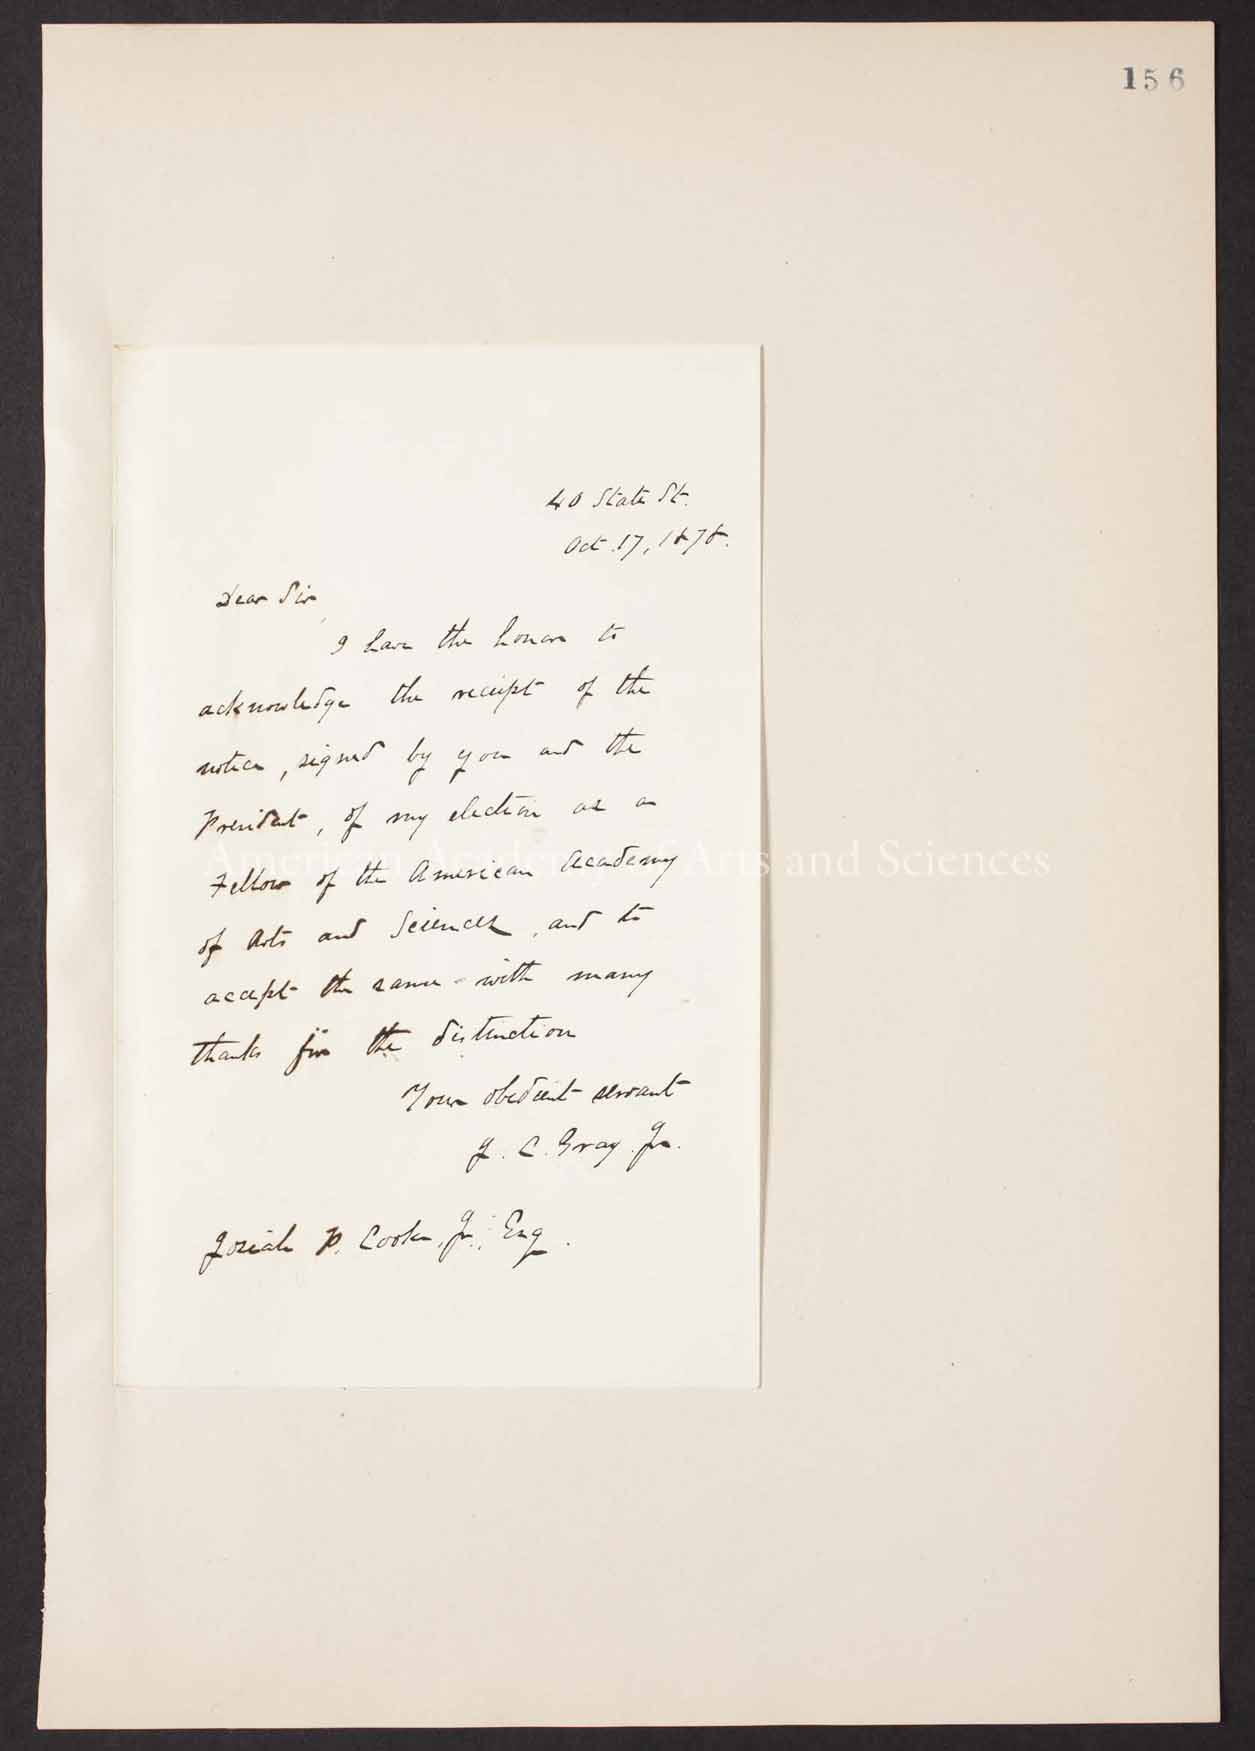 156
40 State St.
Oct. 17, 1878.
Dear Sir,
I have the honor to
acknowledge the receipt of the
notice, signed by you and the
President, of my election as a
American Academy of Arts and Sciences
Fellow of the American Academy
of Arts and Sciences, and to
accept the same - with many
thanks for the distinction
Your obedient servant
J. C. Gray. Jr.
Josiah P. Cooke, Jr., Esq.